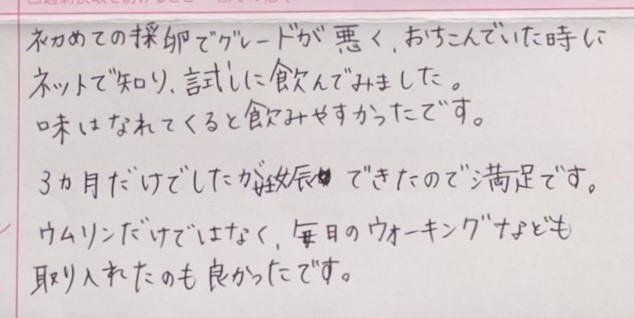 初めての採卵でグレードが悪く、おちこんでいた時に
ネットで知り、試しに飲んでみました。
味はなれてくると飲みやすかったです。
3ヵ月だけでしたが妊娠できたので満足です。
ウムリンだけではなく、毎日のウォーキングなども
取り入れたのも良かったです。